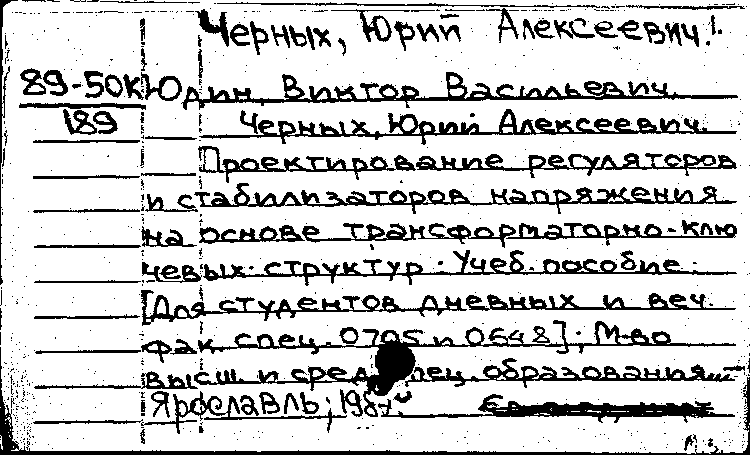 Черных, Юрий Алексеевич.
89-50К Юдин, Виктор Васильевич.
189 Черных, Юрий Алексеевич.
Проектирование регуляторов
и стабилизаторов напряжения
на основе трансформаторно-клю
чевых структур: Учеб. пособие.
[Для студентов дневных и веч.
фак. спец. 0705 и 0648]; М-во
высш. и сред. спец. образования...
Ярославль;